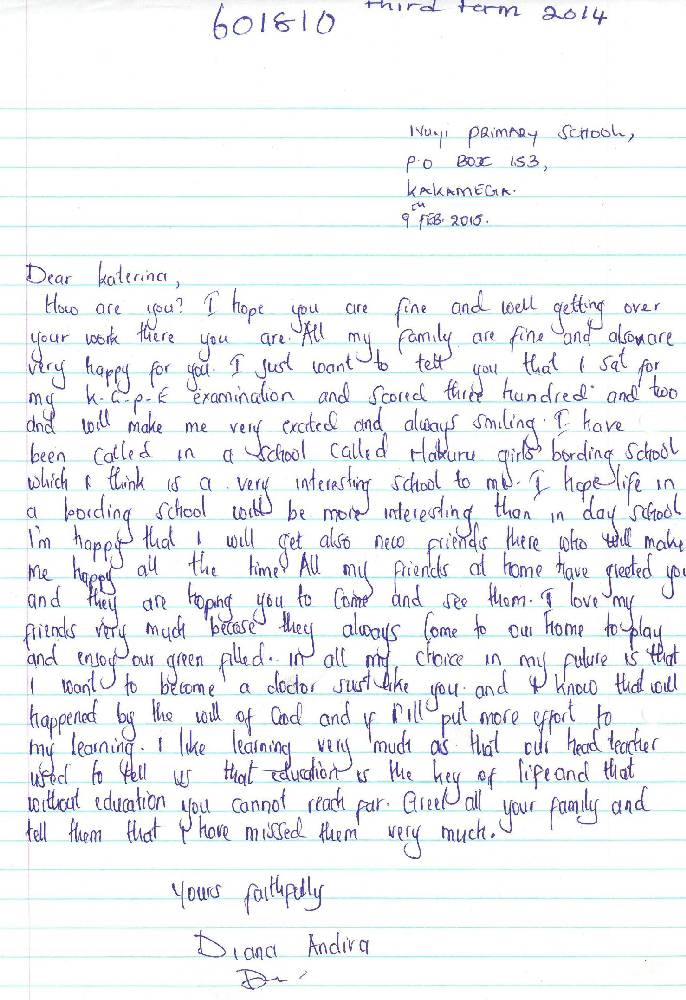 601810 third term 2014
Ivugi PRIMARY SCHOOL,
P.O BOX 153,
KAKAMEGA.
9th FEB. 2015.
Dear Katerina,
How are you? I hope you are fine and well getting over
your work there you are. All my family are fine and also are
very happy for you. I just want to tell you that I sat for
my K-C-P-E examination and scored three hundred and two
and will make me very excited and always smiling. I have
been called in a school called girls bording school
which I think is a very interesting school to me. I hope life in
a bording school will be more interesting than in day school
I'm happy that I will get also new friends there who will make
me happy all the time. All my friends at home have greeted you
and they are hoping you to come and see them. I love my
friends very much becose they always come to our home to play
and enjoy our green filled. in all my choice in my future is that
I want to become a doctor just like you. and I know that will
happened by the will of God and if I'll put more effort to
my learning. I like learning very much as that our head teacher
used to tell us that education is the key of life and that
without education you cannot reach far. Greet all your family and
tell them that I have missed them very much.
Yours faithfully
Diana Andira